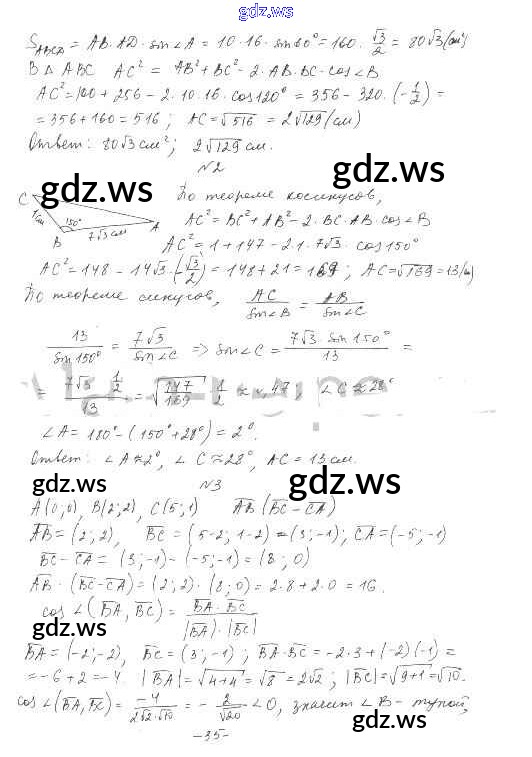 gdz.ws
S_ABCD = AB·AD·sin∠A = 10·16·sin60° = 160·√3/2 = 80√3 (см²)
В △ABC AC² = AB² + BC² - 2·AB·BC·cos∠B
AC² = 100 + 256 - 2·10·16·cos120° = 356 - 320·(-1/2) =
= 356 + 160 = 516; AC = √516 = 2√129 (см)
Ответ: 80√3 см²; 2√129 см.
№2
gdz.ws gdz.ws
По теореме косинусов,
C 1см 150° B 7√3 см A
AC² = BC² + AB² - 2·BC·AB·cos∠B
AC² = 1 + 147 - 2·1·7√3·cos150°
AC² = 148 - 14√3·(-√3/2) = 148 + 21 = 169; AC = √169 = 13 (см)
По теореме синусов, AC/sin∠B = AB/sin∠C
13/sin150° = 7√3/sin∠C => sin∠C = 7√3·sin150°/13 =
= 7√3·1/2/13 = √147/169·1/2 ≈ 0,47; ∠C ≈ 28°
∠A = 180° - (150° + 28°) = 2°.
Ответ: ∠A ≈ 2°, ∠C ≈ 28°, AC = 13 см.
№3
gdz.ws gdz.ws
A(0;0), B(2;2), C(5;1) AB(BC - CA)
AB = (2;2), BC = (5-2; 1-2) = (3;-1); CA = (-5;-1)
BC - CA = (3;-1) - (-5;-1) = (8;0)
AB·(BC - CA) = (2;2)·(8;0) = 2·8 + 2·0 = 16.
cos∠(BA, BC) = BA·BC/|BA|·|BC|
gdz.ws gdz.ws
BA = (-2;-2), BC = (3;-1); BA·BC = -2·3 + (-2)(-1) =
= -6 + 2 = -4. |BA| = √4+4 = √8 = 2√2; |BC| = √9+1 = √10.
cos∠(BA, BC) = -4/2√2·√10 = -2/√20 < 0, значит ∠B - тупой,
gdz.ws gdz.ws
-35-
gdz.ws